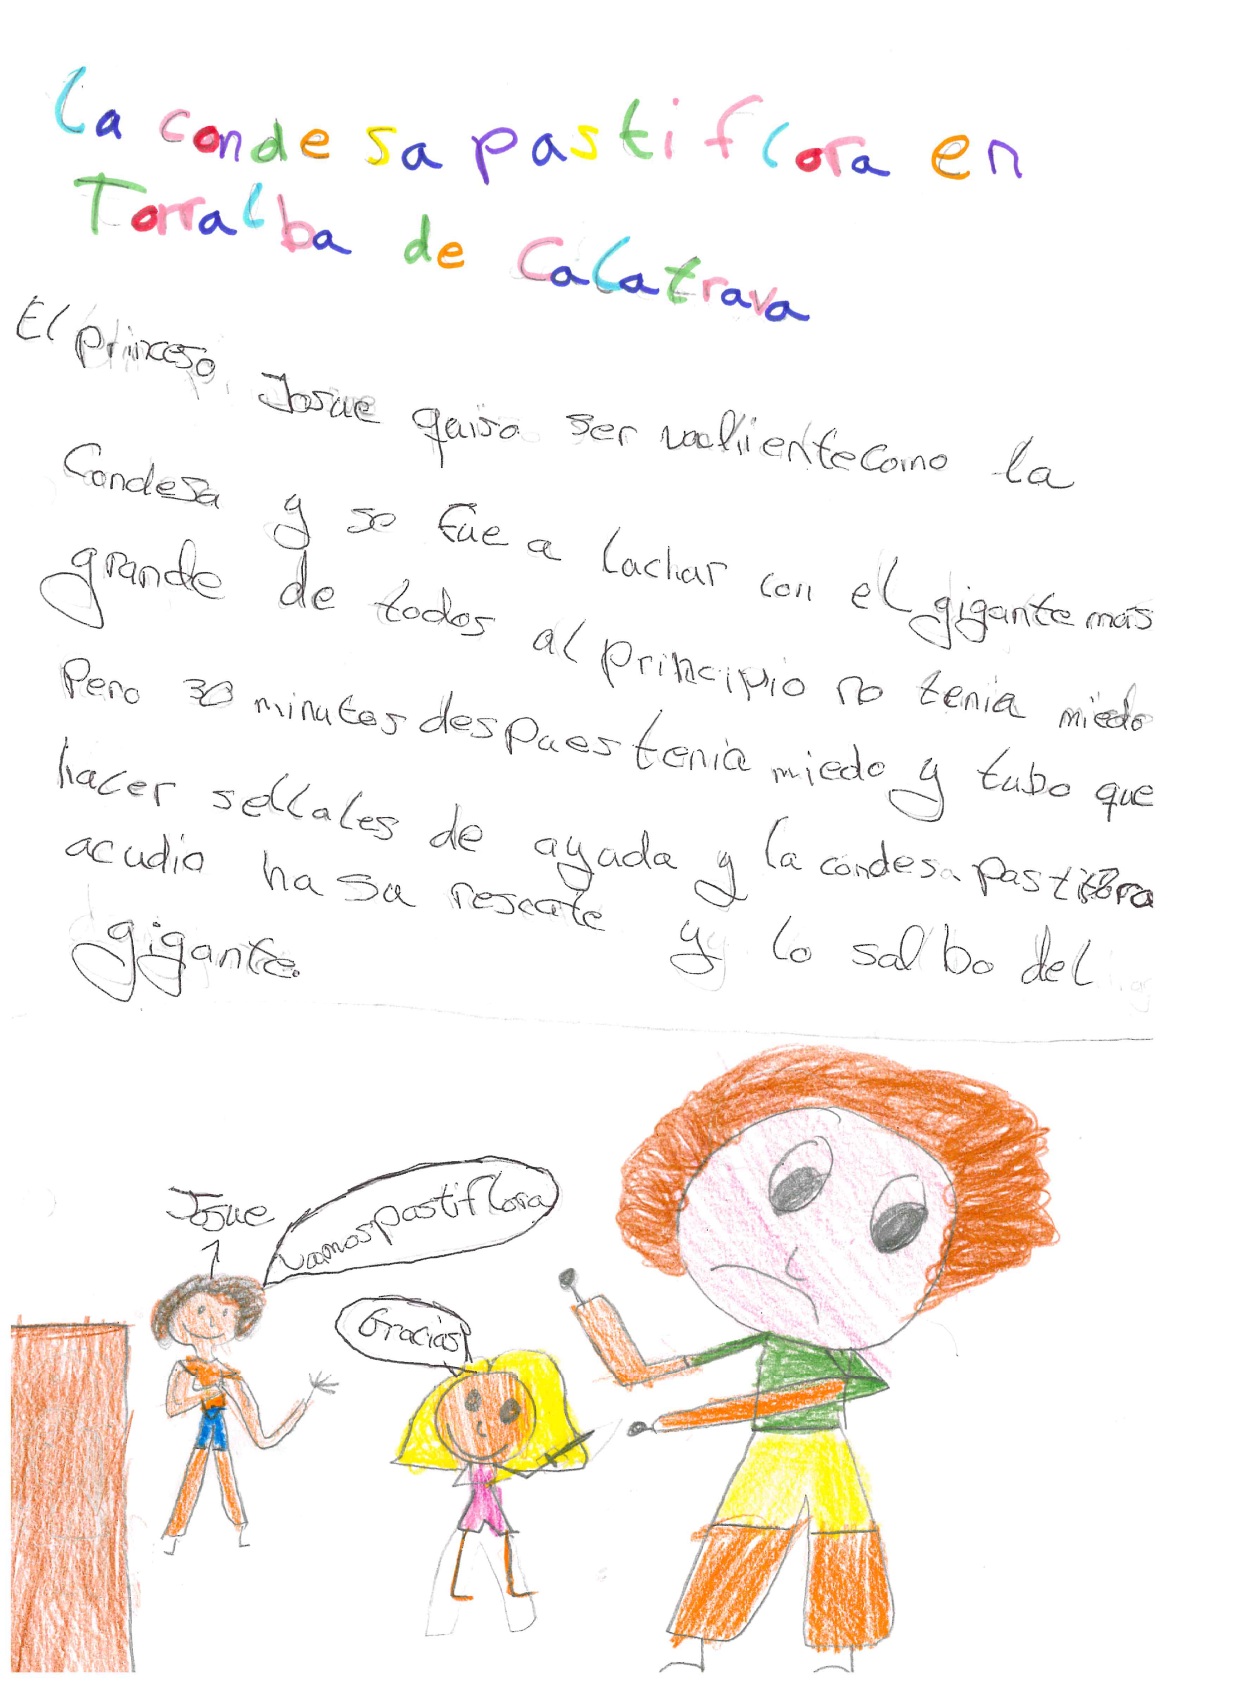 La condesa pastiflora en
Torralba de Calatrava
El princeso Josue quiso ser valiente como la
Condesa y se fue a luchar con el gigante mas
grande de todos al principio no tenia miedo
Pero 30 minutos despues tenia miedo y tubo que
hacer sellales de ayuda y la condesa pastiflora
acudio ha su rescate y lo salbo del
gigante.
Josue
vamos pastiflora
Gracias